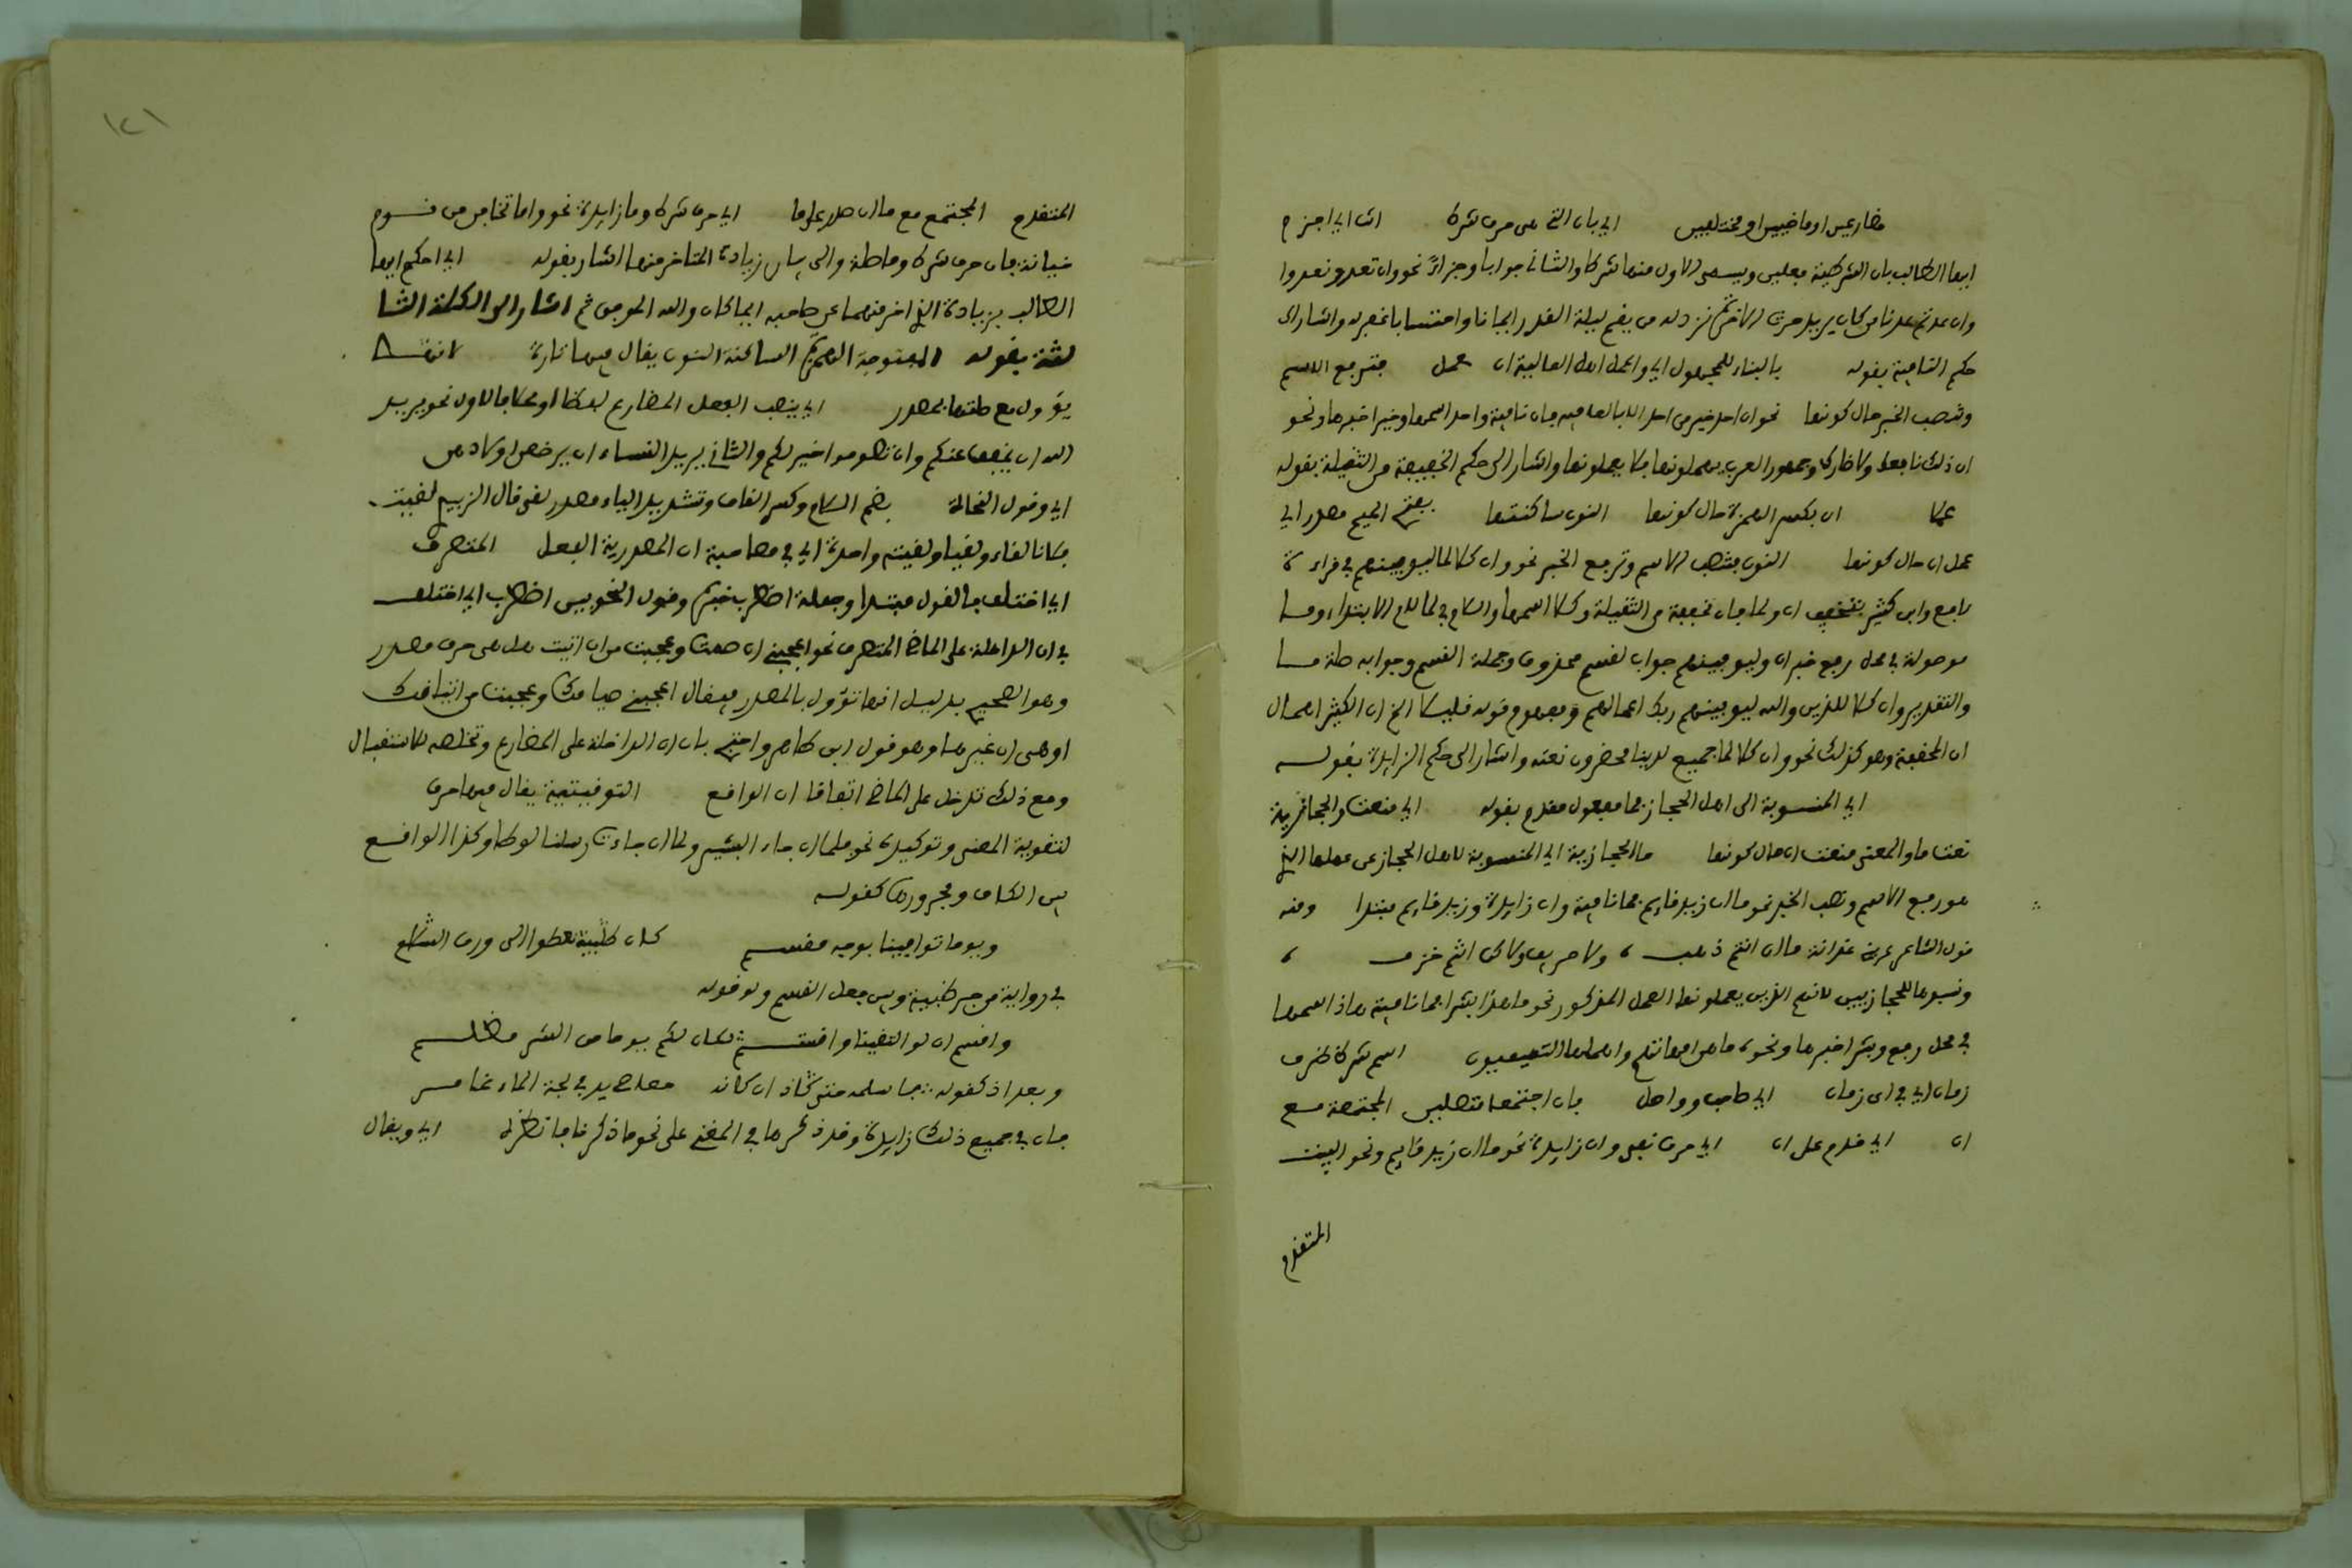 مضارعين او ماضيين او مختلفين اي بان التي هي حرف شرط ان اي اجزم
ايها الطالب بان الشرطية فعلين ويسمى الاول منهما شرطا والثاني جوابا وجزاء نحو وان تعودوا نعد وا
وان عدتم عدنا من كان يريد حرث الاخرة نزد له من يقم ليلة القدر ايمانا واحتسابا غفر له واشار الى
حكم النافية بقوله بالبناء للمجهول اي واعمل اهل العالية ان عمل فترفع الاسم
وتنصب الخبر حال كونها نحو ان احد خير من احد الا بالعافية فان نافية واحد اسمها وخيرا خبرها ونحو
ان ذلك نافعك ولا ضارك وجمهور العرب يهملونها فلا يعملونها واشار الى حكم الخفيفة من الثقيلة بقوله
عملا ان بكسر الهمزة حال كونها النون ساكنتها بفتح الميم مصدر اي
عمل ان حال كونها النون فتنصب الاسم وترفع الخبر نحو وان كلا لما ليوفينهم في قراءة
نافع وابن كثير بتخفيف ان ولما فان مخففة من الثقيلة وكلا اسمها واللام في لما لام الابتداء وما
موصولة في محل رفع خبر ان وليوفينهم جواب لقسم محذوف وجملة القسم وجوابه صلة ما
والتقدير وان كلا للذين والله ليوفينهم ربك اعمالهم ومفهوم قوله قليلا الخ ان الكثير اهمال
ان المخففة وهو كذلك نحو وان كل لما جميع لدينا محضرون نعته واشار الى حكم الزايدة بقوله
اي المنسوبة الى اهل الحجاز فما مفعول مقدم بقوله اي منعت والحجازية
نعت ما والمعنى منعت ان حال كونها ما الحجازية اي المنسوبة لاهل الحجاز عن عملها الذي
هو رفع الاسم ونصب الخبر نحو ما ان زيد قايم فما نافية وان زايدة وزيد قايم مبتدا ومنه
قول الشاعر غدانة ما ان انتم ذهب ، ولا صريف ولاكن انتم خزف ،
ونسبوها للحجازيين لانهم الذين يعملونها العمل المذكور نحو ما هذا بشرا فما نافية وهاذا اسمها
في محل رفع وبشرا خبرها ونحو ما هن امهاتهم واهملها التميميون اسم شرط ظرف
زمان اي في اي زمان اي صاحب وواصل فان اجتمعا متصلين المجتمعة مع
ان اي قدم على ان اي حرف نفي وان زايدة نحو ما ان زيد قايم ونحو البيت
المتقدم
١٢١
المتقدم المجتمع مع ما ان صدر على ما اي حرف شرط وما زايدة نحو واما تخافن من قوم
خيانة فان حرف شرط وما صلة والى بيان زيادة المتاخر منهما اشار بقوله اي احكم ايها
الطالب بزيادة الذي اخر منهما عن صاحبه ايما كان والله الموفق ثم اشار الى الكلمة الثا
لثة بقوله المفتوحة الهمزة الساكنة النون يقال فيها تارة لانها
يؤول مع صلتها بمصدر اي ينصب الفعل المضارع لفظا او محلا فالاول نحو يريد
الله ان يخفف عنكم وان تصوموا خير لكم والثاني يريد النساء ان يرضعن اولادهن
اي وقول النحاة بضم اللام وكسر القاف وتشديد الياء مصدر لقي قال الزبيدي لقيت
فلانا لقاء ولقيا ولقيته واحدة اي في مصاحبة ان المصدرية الفعل المتصرف
اي اختلف فالقول مبتدا وجملة اضطرب خبره وقول النحويين اضطرب اي اختلف
في ان الداخلة على الماضي المتصرف نحو اعجبني ان صمت وعجبت من ان اتيت هل هي حرف مصدر
وهو الصحيح بدليل انها تؤول بالمصدر فيقال اعجبني صيامك وعجبت من اتيانك
او هي ان غيرها وهو قول ابن طاهر واحتج بان ان الداخلة على المضارع وتخلصه للاستقبال
ومع ذلك تدخل على الماضي اتفاقا ان الواقع التوقيتية يقال فيها حرف
لتقوية المعنى وتوكيده نحو فلما ان جاء البشير ولما ان جاءت رسلنا لوطا وكذا الواقع
بين الكاف ومجرورها كقوله
ويوما توافينا بوجه مقسم كان ظبية تعطوا الى ورق السلم
في رواية من جر ظبية وبين فعل القسم ولو قوله
واقسم ان لو التقينا وانتم لكان لكم يوم من الشر مظلم
وبعد اذ كقوله فامهله حتى اذا ان كانه معاطي يد في لجة الماء غامر
فان في جميع ذلك زايدة وقد ذكرها في المغني على نحو ما ذكرنا فانظره اي ويقال